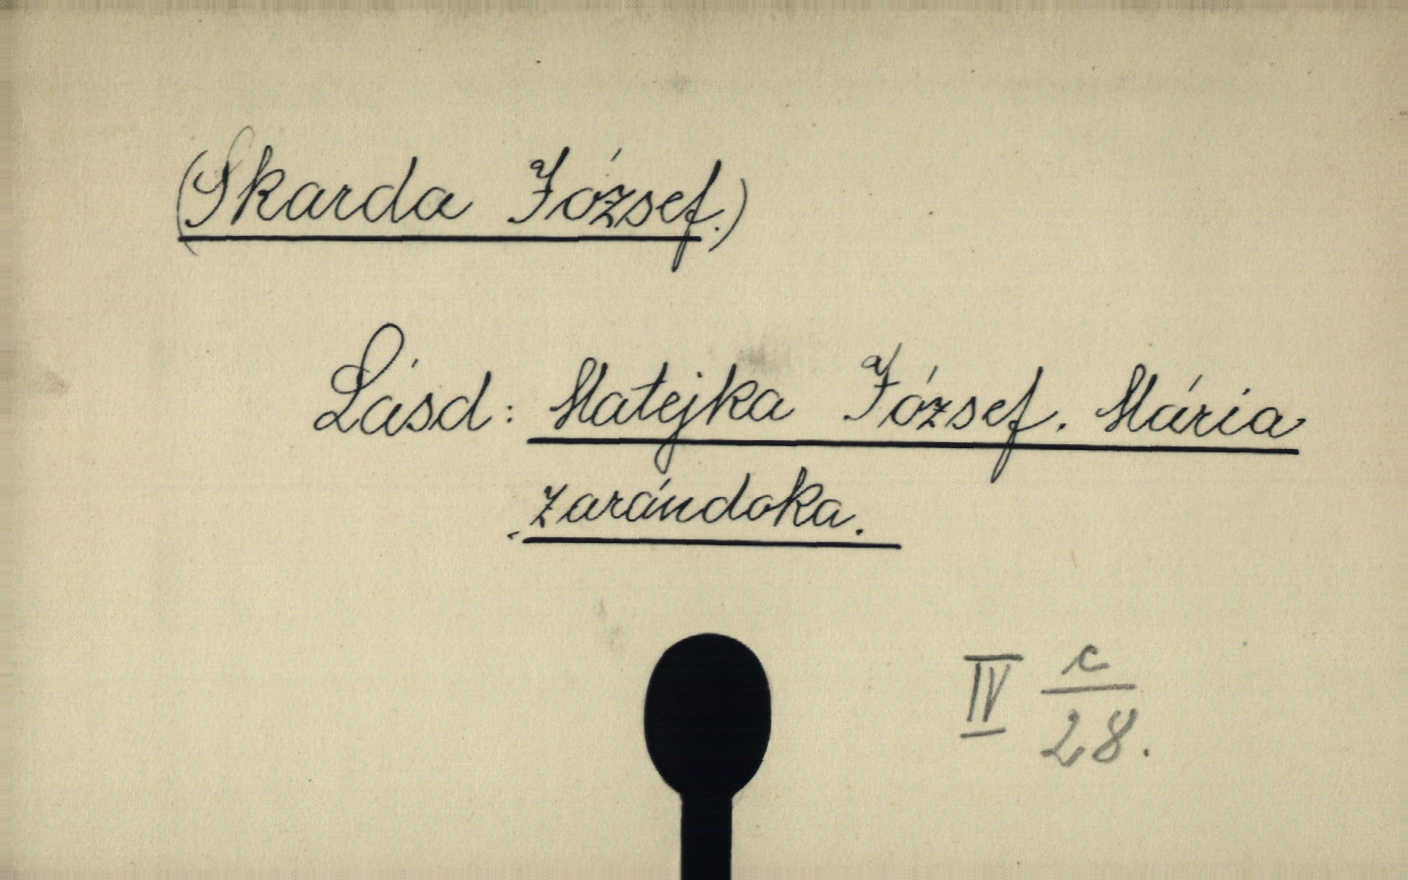 (Skarda József.)
Lásd: Matejka József. Mária
zarándoka.
IV c/28.